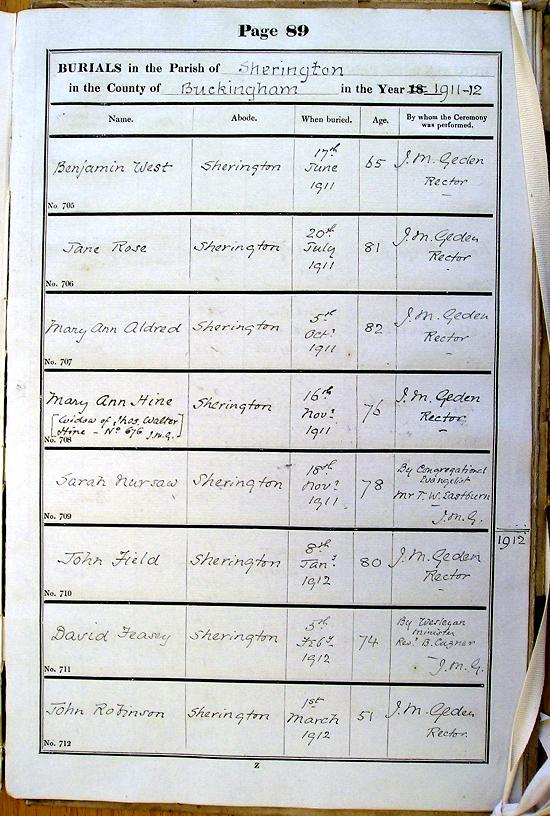 Page 89
BURIALS in the Parish of Sherington
in the County of Buckingham in the Year 18 1911-12
Name. Abode. When buried. Age. By whom the Ceremony was performed.
Benjamin West Sherington 17th June 1911 65 J. M. Geden Rector
No. 705
Jane Rose Sherington 20th July 1911 81 J. M. Geden Rector
No. 706
Mary Ann Aldred Sherington 5th Octr 1911 82 J. M. Geden Rector
No. 707
Mary Ann Hine Sherington 16th Novr 1911 76 J. M. Geden Rector
[Widow of Thos. Walter
Hine - No 676 J.M.G.]
No. 708
Sarah Nursaw Sherington 18th Novr 1911 78 By Congregational Evangelist Mr T. W. Eastburn J.M.G.
No. 709
1912
John Field Sherington 8th Jany 1912 80 J. M. Geden Rector
No. 710
David Feasey Sherington 5th Feby 1912 74 By Wesleyan Minister Revd B. J.M.G.
No. 711
John Robinson Sherington 1st March 1912 51 J. M. Geden Rector.
No. 712
Z